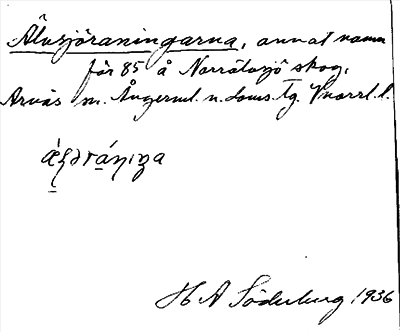 Älvsjöraningarna, annat namn
för 85 å Norråsjö skog,
Arnäs sn. Ångerml. n. doms. tg. Vnorrl. l.
H A Söderberg 1936